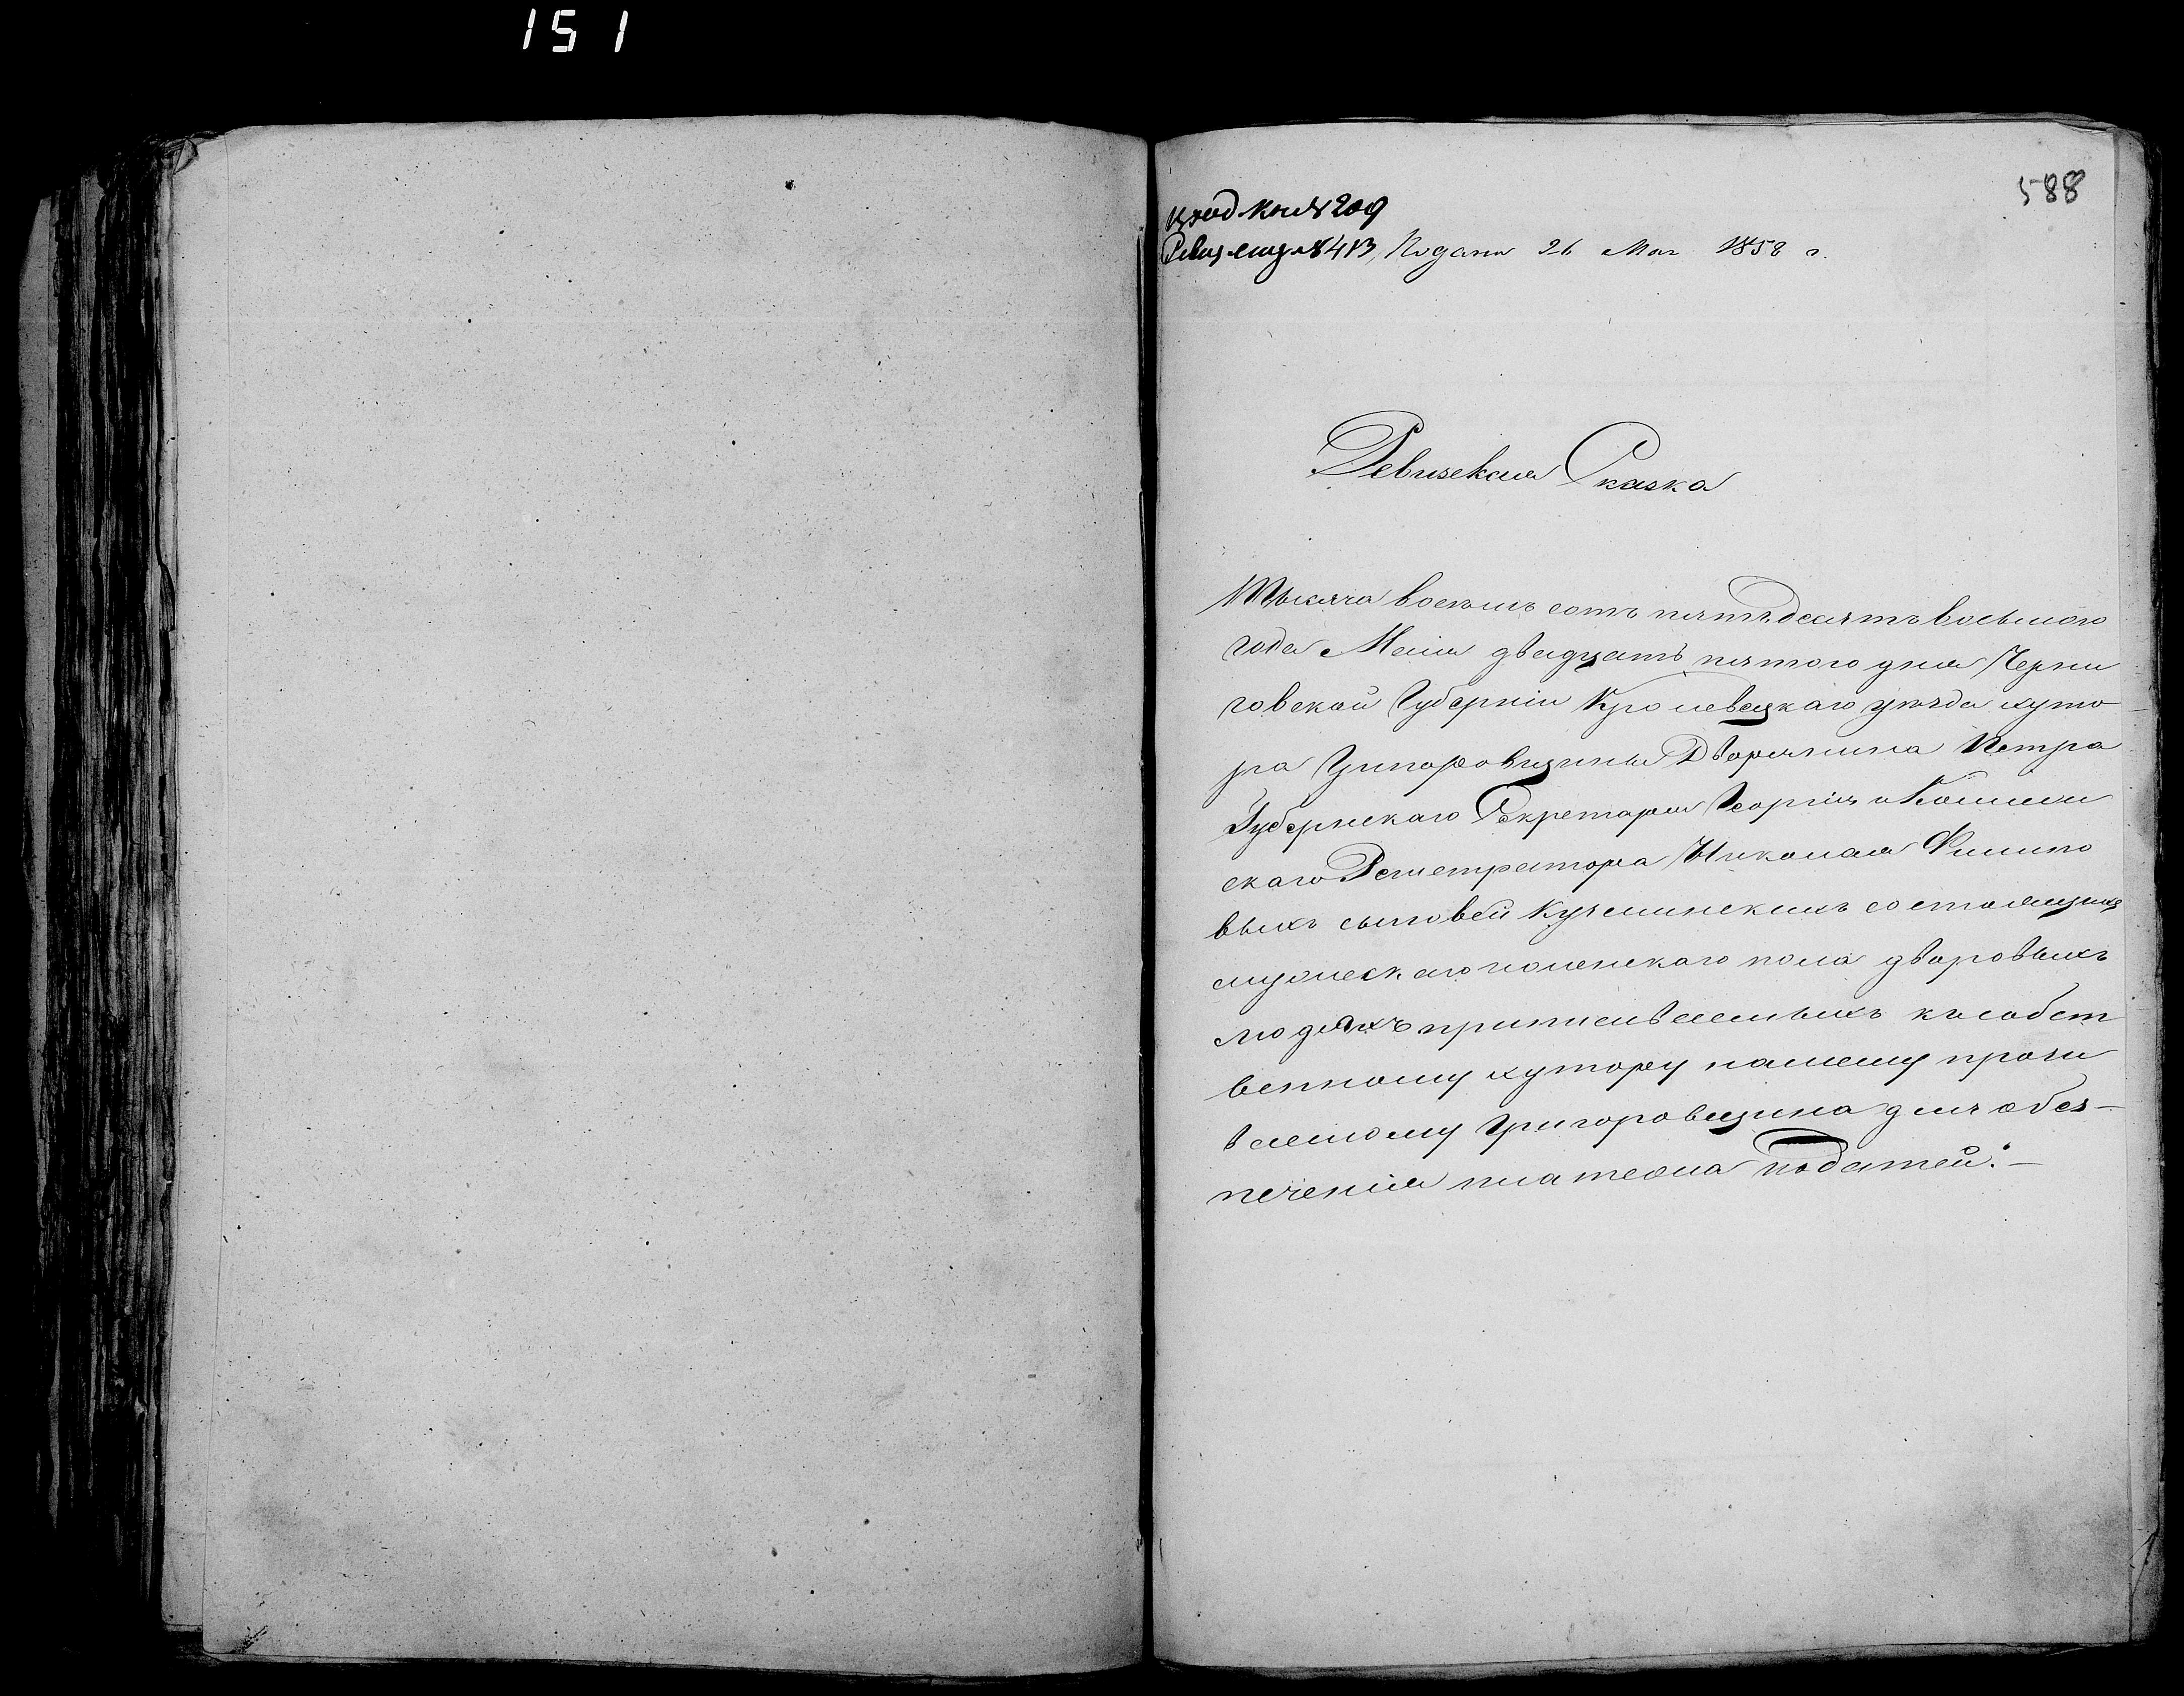 151
588
Вход. Кни. № 209
Ревиз. сказ. № 413, Подана 26 Мая 1858 г.
Ревизская Сказка
Тысяча восемь сотъ пятьдесятъ восьмого
года Маія двадцать пятого дня Черни
говской Губерніи Кролевецкаго уѣзда хуто
ра Григоровщины Дворянина Петра
Губернскаго Секретаря Георгія и Колеж
скаго Регистратора Николая Филипо
выхъ сыновей Кучминскихъ состоящихъ
мужескаго и женскаго пола дворовыхъ
людяхъ приписываемыхъ къ собст
венному хутору нашему прозы
ваемому Григоровщина для обез-
печенія платежа податей.–